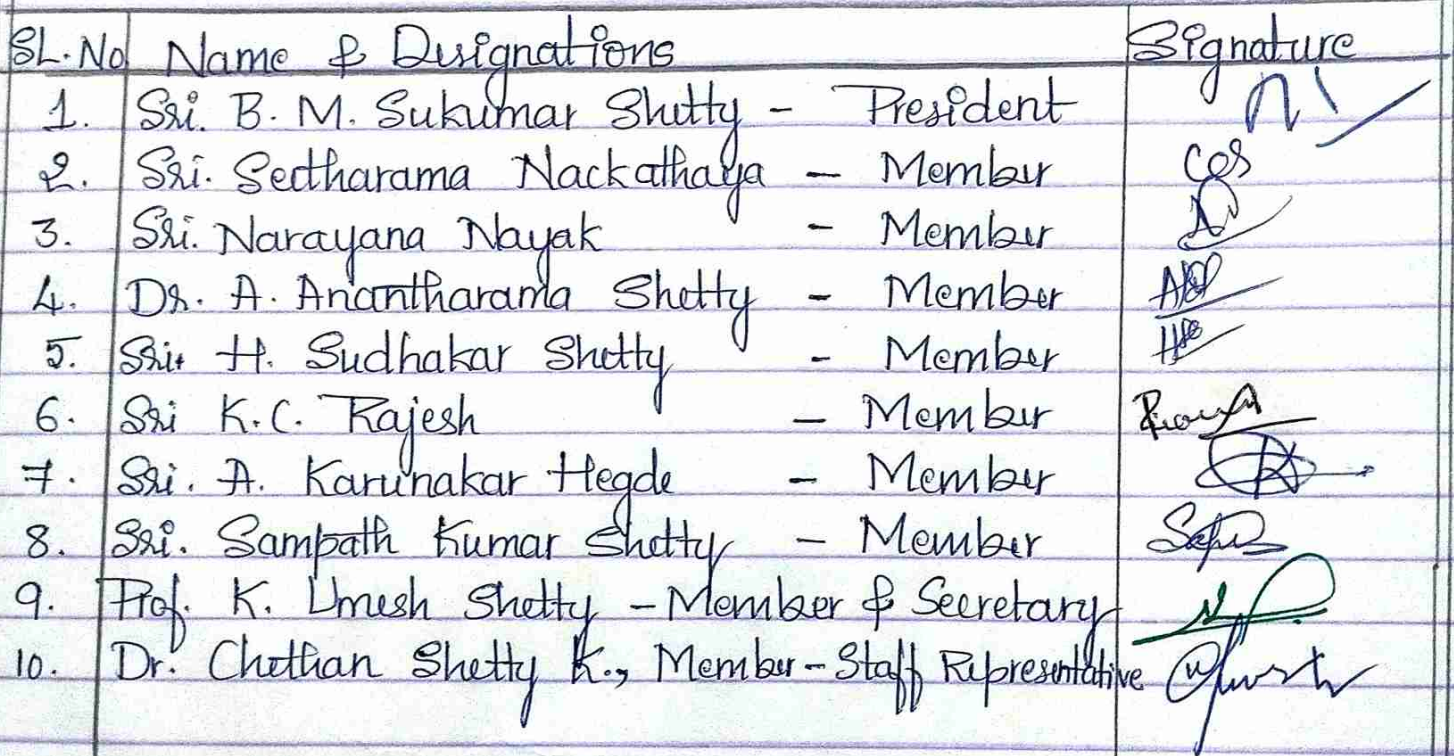 SL.No Name & Designations Signature
1. Sri. B. M. Sukumar Shetty - President
2. Sri. Seetharama Nackathaya - Member
3. Sri. Narayana Nayak - Member
4. Dr. A. Anantharama Shetty - Member
5. Sri. H. Sudhakar Shetty - Member
6. Sri K.C. Rajesh - Member
7. Sri. A. Karunakar Hegde - Member
8. Sri. Sampath Kumar Shetty - Member
9. Prof. K. Umesh Shetty - Member & Secretary
10. Dr. Chethan Shetty K., Member - Staff Representative